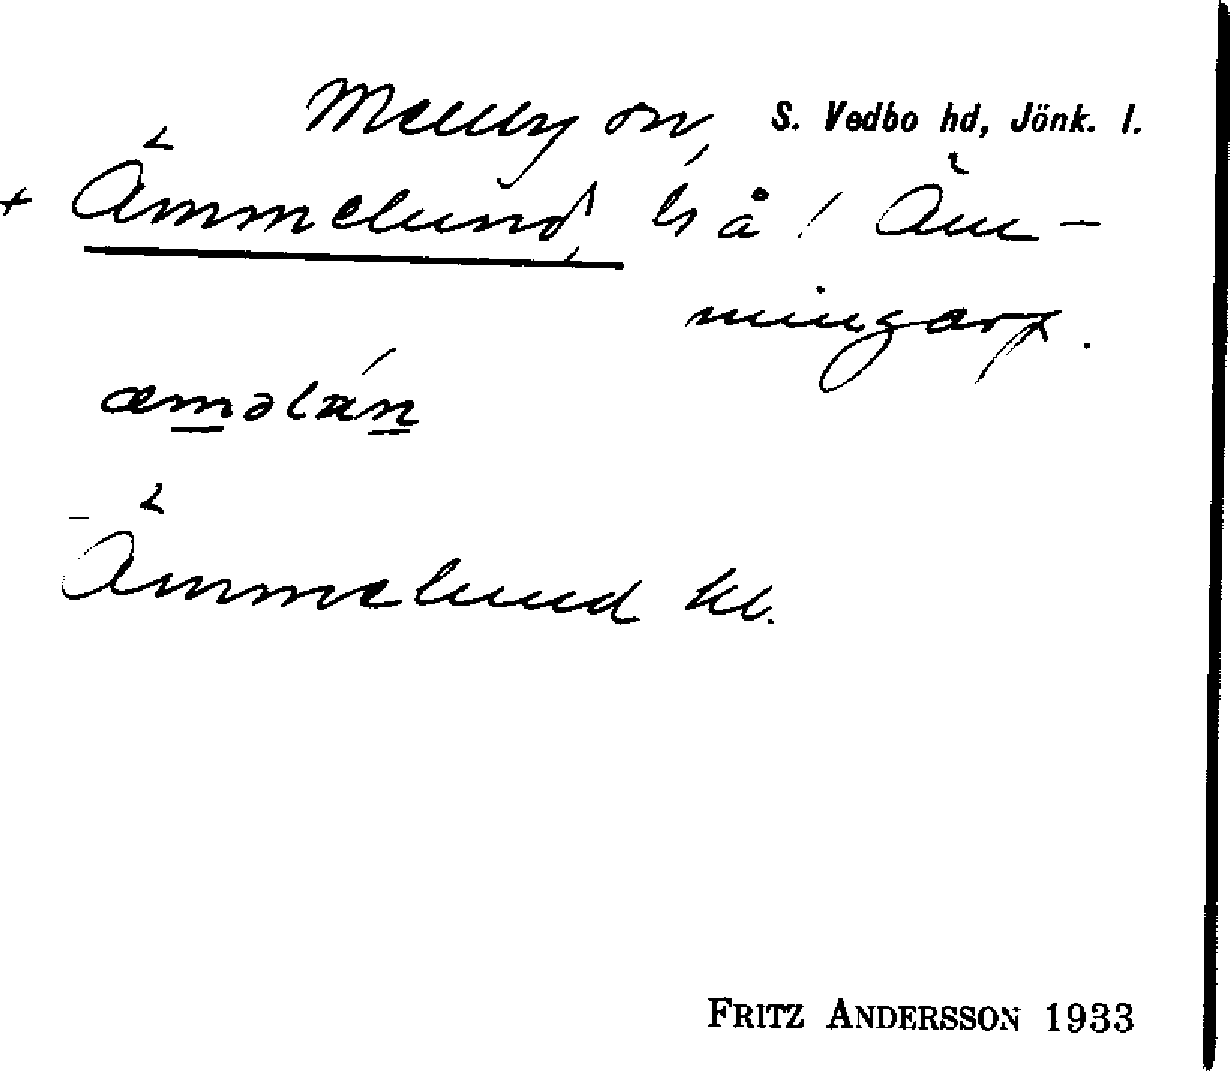 Mellby sn, S. Vedbo hd, Jönk. l.
+ Ämmelund, ls å Äm-
mingarp.
æməlán
Ämmelund kl.
FRITZ ANDERSSON 1933